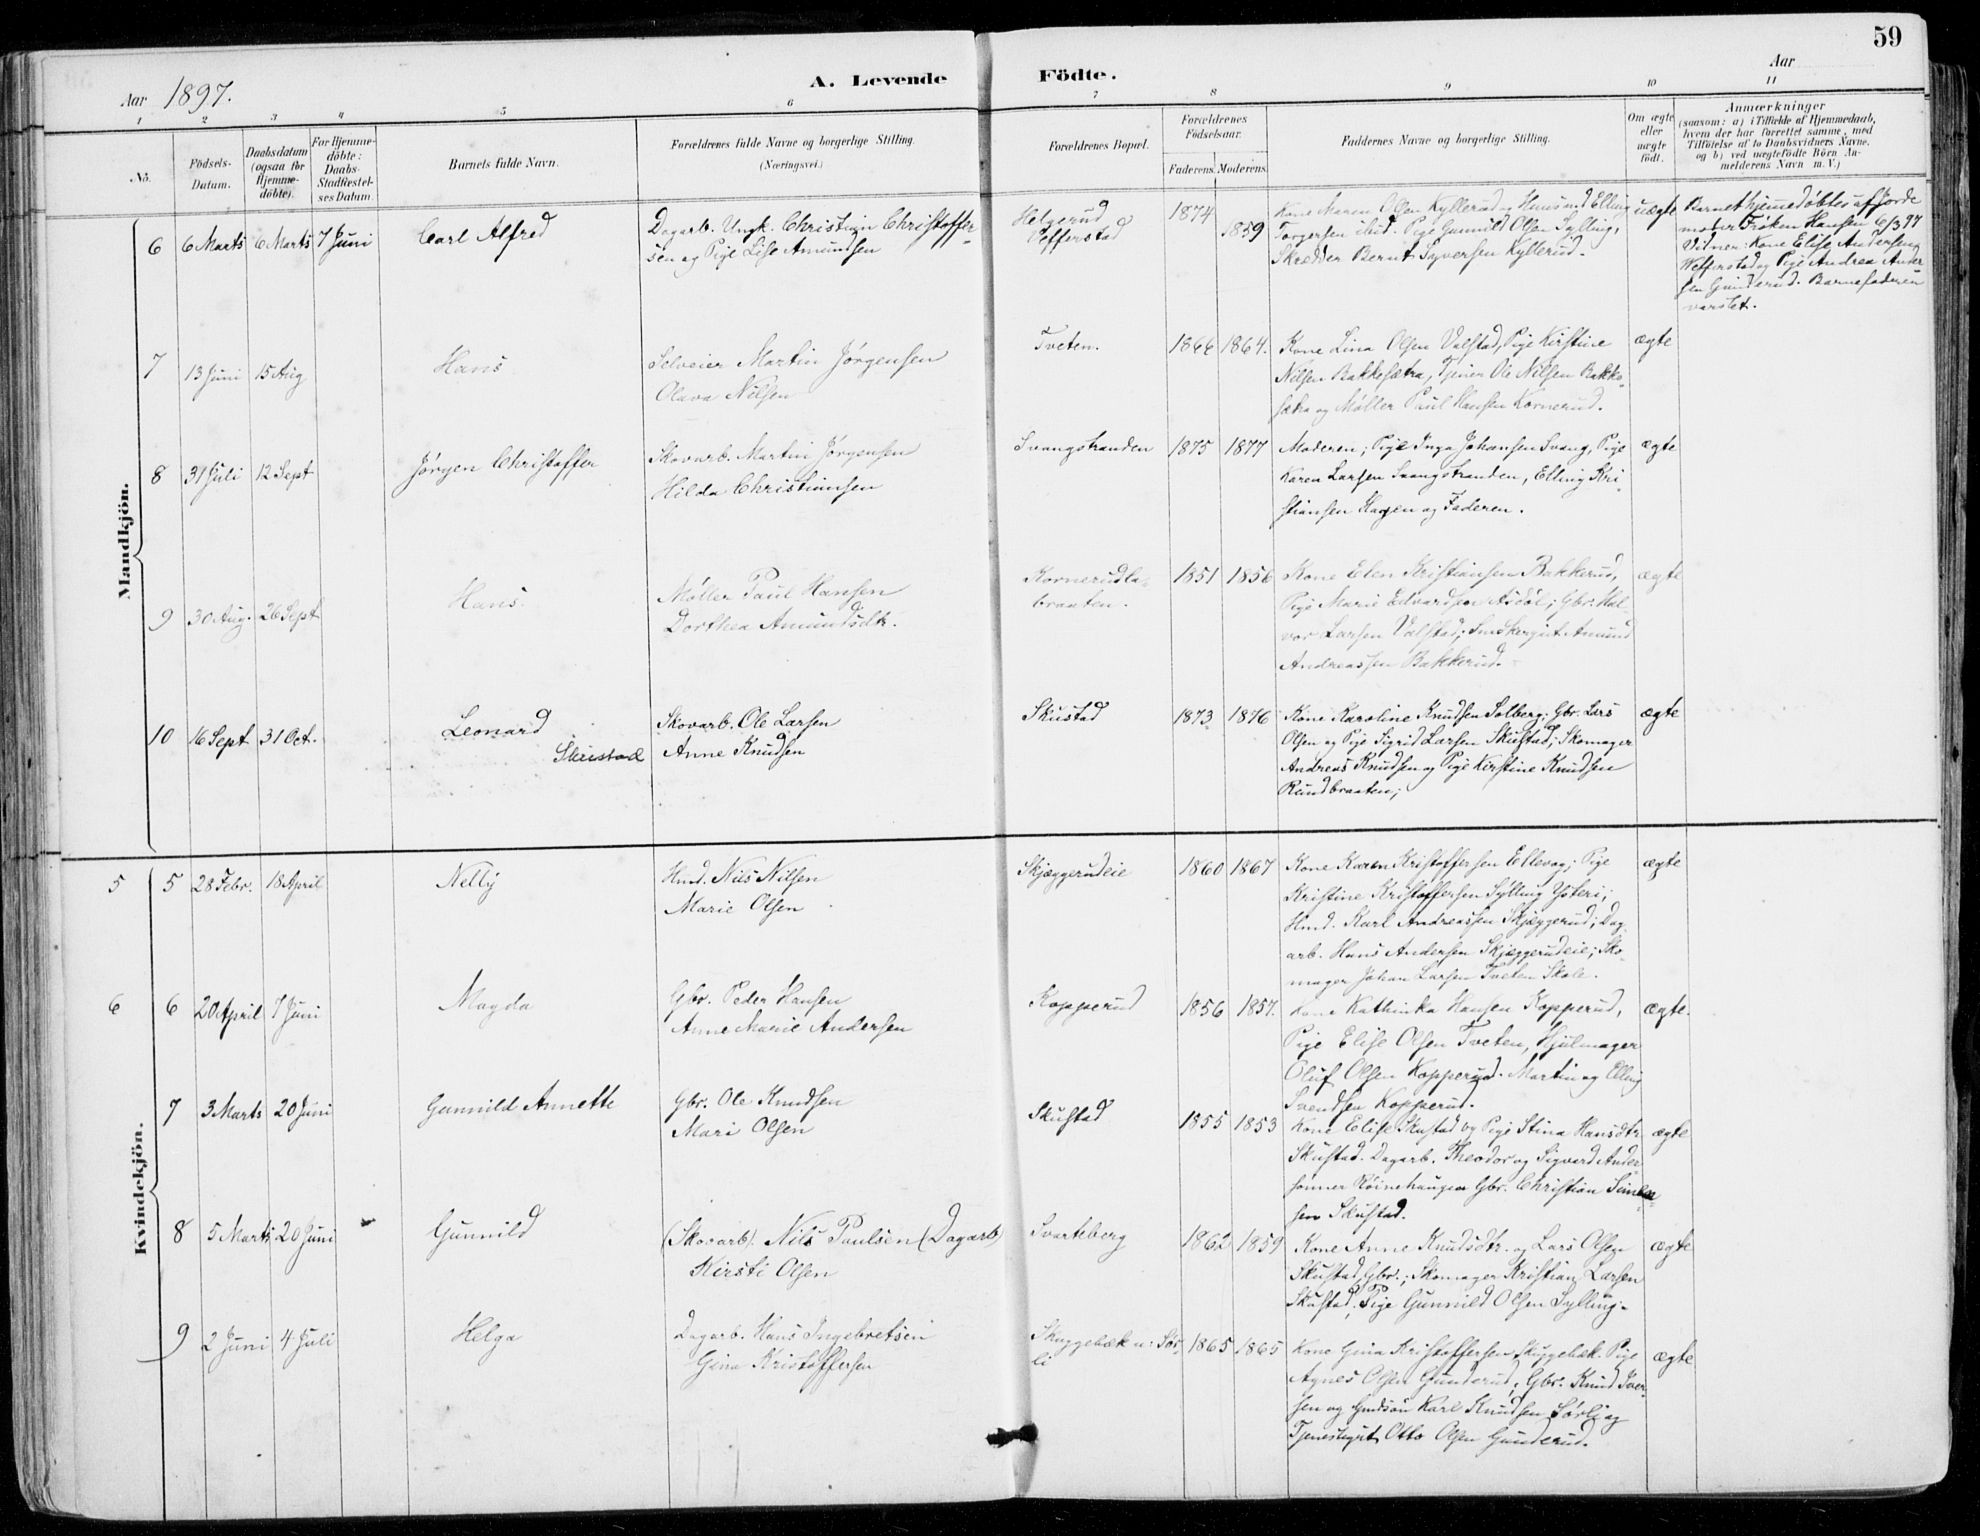 59
Aar 1897.
A. Levende Födte.
Aar
1 2 3 4 5 6 7 8 9 10 11
No.
Födsels-Datum.
Daabsdatum (ogsaa for Hjemme-döbte).
For Hjemme-döbte: Daabs-Stadfæstel-ses Datum.
Barnets fulde Navn.
Forældrenes fulde Navne og borgerlige Stilling. (Næringsvei.)
Forældrenes Bopæl.
Forældrenes Födselsaar.
Faderens. Moderens.
Faddernes Navne og borgerlige Stilling.
Om ægte eller uægte födt.
Anmærkninger
(saasom: a) i Tilfælde af Hjemmedaab,
hvem der har forrettet samme, med
Tilföielse af to Daabsvidners Navne,
og b) ved uægtefödte Börn An-
melderens Navn m. V.)
Mandkjön.
6 6 Marts 6 Marts 7 Juni Carl Alfred
Dagarb. Ungk. Christian Christoffer-
sen og Pige Lise Amundsen
Helgerud
Pefferstad
1874 1859
Kone Maren Olsen Kyllerud og Husmd Elling
Torgersen ibid. Pige Gunnild Olsen Sylling,
Skrædder Bernt Syversen Kyllerud.
uægte
Barnet hjemmedöbtes af Jorde
moder Fröken Hansen 6/3 97
Vidner: Kone Elise Andersen
Wefferstad og Pige Andrea Ander
sen Gunderud. Barnefaderen
varslet.
7 13 Juni 15 Aug Hans
Selveier Martin Jørgensen
Olava Nilsen
Tveten.
1866 1864.
Kone Lina Olsen Valstad, Pige Kirstine
Nilsen Bakkesætra, Tjener Ole Nilsen Bakke-
sætra og Møller Paul Hansen Kornerud.
ægte
8 31 Juli 12 Sept Jørgen Christoffer
Skovarb. Martin Jørgensen
Hilda Christiansen
Svangstranden
1875 1877
Moderen; Pige Inga Johansen Svang, Pige
Karen Larsen Svangstranden, Elling Kri-
stiansen Hagen og Faderen.
ægte
9 30 Aug. 26 Sept Hans.
Møller Paul Hansen
Dorthea Amundsdtr.
Kornerudla-
braaten.
1851 1856
Kone Elen Kristiansen Bakkerud,
Pige Marie Edvardsen Asdøl; Gbr. Hal-
vor Larsen Valstad; Amund
Andreassen Bakkerud.
ægte
10 16 Sept 31 Oct. Leonard
Skustad
Skovarb. Ole Larsen
Anne Knudsen
Skustad
1873 1876
Kone Karoline Knudsen Solberg; Gbr. Lars
Olsen og Pige Sigrid Larsen Skustad; Skomager
Andreas Knudsen og Pige Kirstine Knudsen
Rundbraaten;
ægte
Kvindekjön.
5 5 28 Febr. 18 April Nelly
Hmd. Nils Nilsen
Marie Olsen
Skjæggerudeie
1860 1867
Kone Karen Kristoffersen Ellevog; Pige
Kristine Kristoffersen Sylling Ysteri;
Hmd. Karl Andreassen Skjæggerud; Dag
arb. Hans Andersen Skjæggerudeie; Sko-
mager Johan Larsen Tveten Skole.
ægte
6 6 20 April 7 Juni Magda
Gbr. Peder Hansen
Anne Marie Andersen
Kopperud
1856 1857.
Kone Kathinka Hansen Kopperud,
Pige Elise Olsen Tveten, Hjulmager
Oluf Olsen Kopperud. Martin og Elling
Svendsen Kopperud.
ægte.
7 3 Marts 20 Juni Gunnild Annette
Gbr. Ole Knudsen
Mari Olsen
Skustad
1855 1853
Kone Elise Skustad og Pige Stina Hansdtr.
Skustad. Dagarb. Theodor og Sigvard Ander-
sønner Röinehaugen Gbr. Christian Simen-
sen Skustad.
ægte
8 5 Marts 20 Juni Gunnild
(Skovarb). Nils Paulsen (Dagarb)
Kirsti Olsen
Svarteberg
1862 1859
Kone Anne Knudsdtr. og Lars Olsen
Skustad, Gbr.; Skomager Kristian Larsen
Skustad. Pige Gunnild Olsen Sylling.
ægte
9 2 Juni 4 Juli Helga
Dagarb. Hans Ingebretsen
Gina Kristoffersen
Skyggebæk u: Sör-
li
1865 1865
Kone Gina Kristoffersen Skyggebæk. Pige
Agnes Olsen Gunderud; Gbr. Knud Iver-
sen og Karl Knudsen Sörli og
Tjenestegut Otto Olsen Gunderud.
ægte